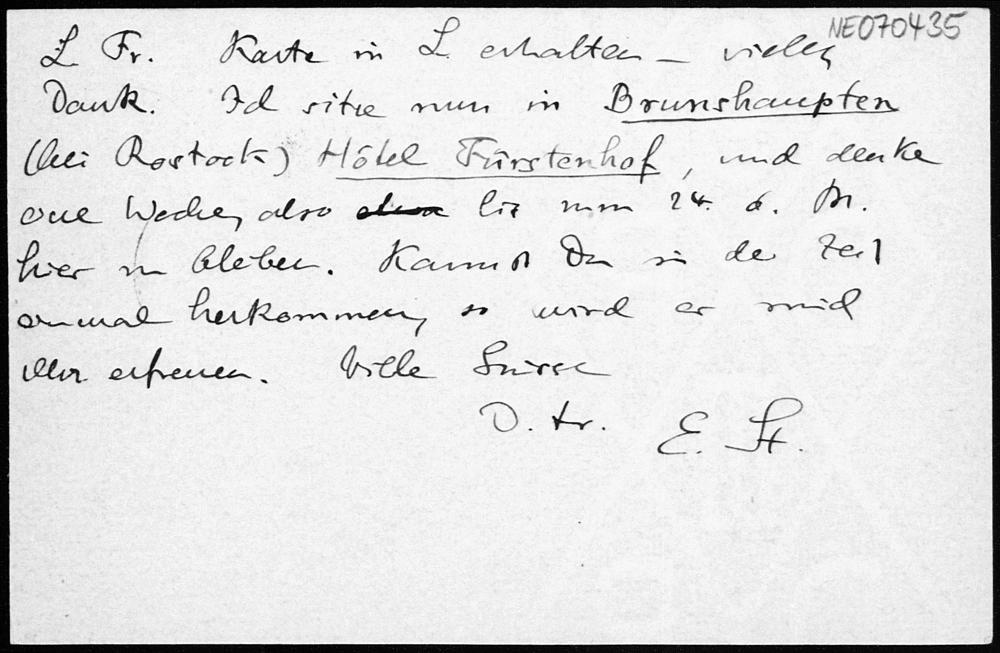 NE070435
L. Fr. Karte in L. erhalten – vielen
Dank. Ich sitze nun in Brunshaupten
(bei Rostock) Hôtel Fürstenhof, und denke
eine Woche, also etwa bis zum 24. d. M.
hier zu bleiben. Kannst Du in der Zeit
einmal herkommen, so wird es mich
sehr erfreuen. Viele Grüsse
D. tr. E. St.